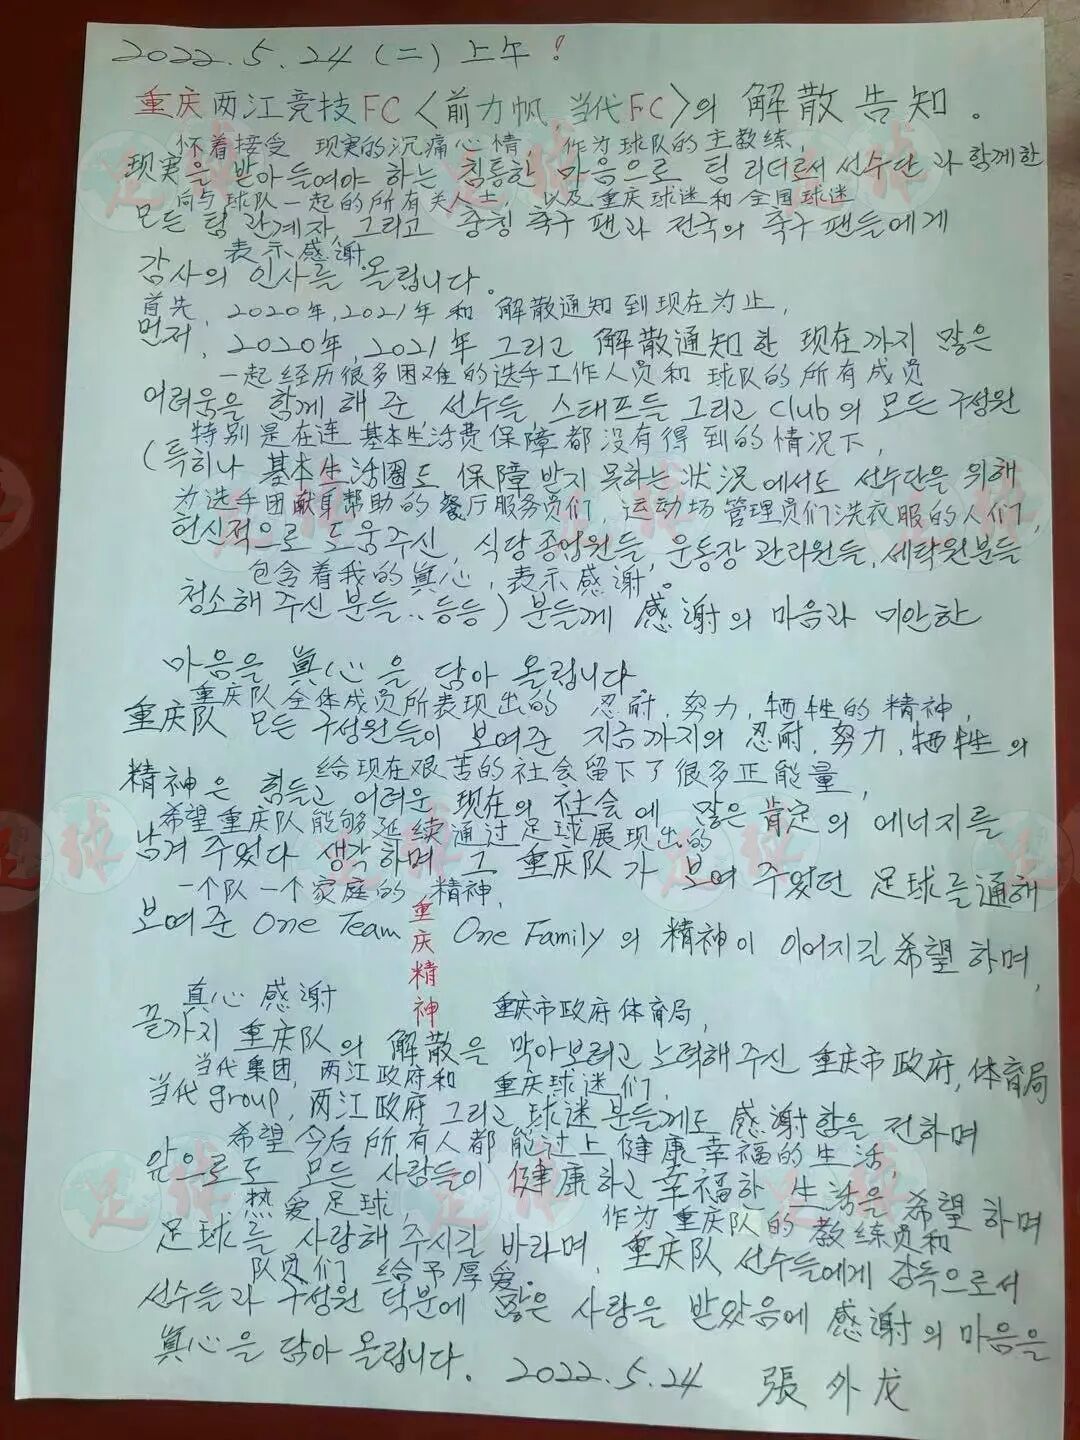 2022.5.24(二)上午!
重庆两江竞技FC〈前力帆 当代FC〉의 解散告知。
怀着接受 现实的沉痛心情, 作为球队的主教练,
现实을 받아들여야 하는 침통한 마음으로 팀 리더로서 선수단과 함께한
向与球队一起的所有关人士, 以及重庆球迷和全国球迷
모든 팀 관계자, 그리고 중칭 축구 팬과 전국의 축구 팬들에게
表示感谢
감사의 인사를 올립니다。
首先, 2020年,2021年 和 解散通知到现在为止,
먼저, 2020年, 2021年 그리고 解散通知한 现在까지 많은
一起经历很多困难的选手工作人员和 球队的所有成员
어려움을 함께 해 준 선수들 스태프들 그리고 Club의 모든 구성원
特别是在连 基本生活费保障都没有得到的情况下,
(특히나 基本生活圈도 保障받지 못하는 状况에서도 선수단을 위해
为选手团献身帮助的餐厅服务员们, 运动场管理员们洗衣服的人们,
헌신적으로 도움주신, 식당종업원들, 운동장관리원들, 세탁원분들
包含着我的真心, 表示感谢。
청소해 주신 분들..등등) 분들께 感谢의 마음과 미안한
마음을 真心을 담아 올립니다.
重庆队全体成员所表现出的 忍耐,努力,牺牲的精神,
重庆队 모든 구성원들이 보여준 지금까지의 忍耐,努力,牺牲의
给现在艰苦的社会留下了很多正能量,
精神은 힘들고 어려운 现在의 社会에 많은 肯定의 에너지를
希望重庆队能够延续通过足球展现出的
남겨 주었다 생각하며 그 重庆队가 보여 주었던 足球를 通해
一个队一个家庭的 精神,
보여준 One Team One Family의 精神이 이어지길 希望하며,
重庆精神
真心感谢 重庆市政府体育局,
끝까지 重庆队의 解散을 막아보려고 노력해주신 重庆市政府, 体育局
当代集团, 两江政府和 重庆球迷们,
当代group, 两江政府 그리고 球迷 분들께도 感谢함을 전하며
希望今后所有人都能过上健康幸福的生活,
앞으로도 모든 사람들이 健康하고 幸福한 生活을 希望하며
热爱足球, 作为重庆队的教练员和
足球를 사랑해 주시길 바라며, 重庆队 선수들에게 감독으로서
队员们 给予厚爱。
선수들과 구성원 덕분에 많은 사랑을 받았음에 感谢의 마음을
真心을 담아 올립니다. 2022.5.24 張外龙
足球